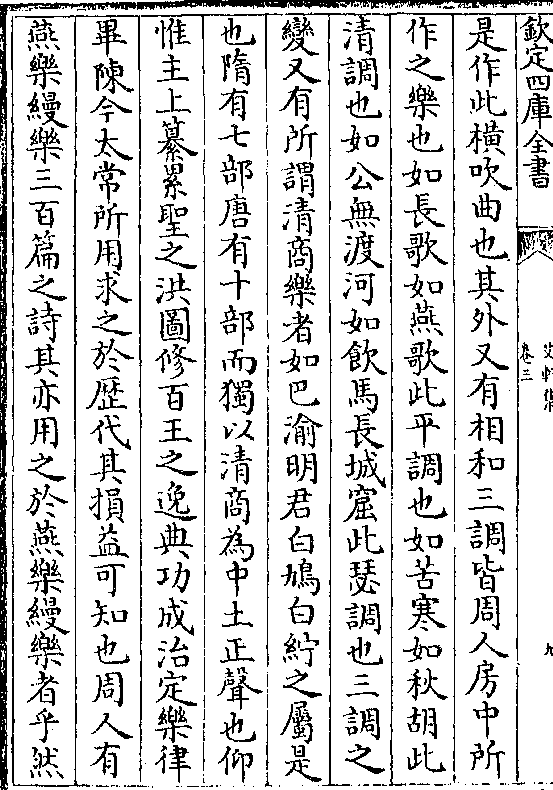 欽定四庫全書
卷三
九
是作此橫吹曲也其外又有相和三調皆周人房中所
作之樂也如長歌如燕歌此平調也如苦寒如秋胡此
清調也如公無渡河如飲馬長城窟此瑟調也三調之
變又有所謂清商樂者如巴渝明君白鳩白紵之屬是
也隋有七部唐有十部而獨以清商為中土正聲也仰
惟主上纂累聖之洪圖修百王之逸典功成治定樂律
畢陳今太常所用求之於歴代其損益可知也周人有
燕樂縵樂三百篇之詩其亦用之於燕樂縵樂者乎然